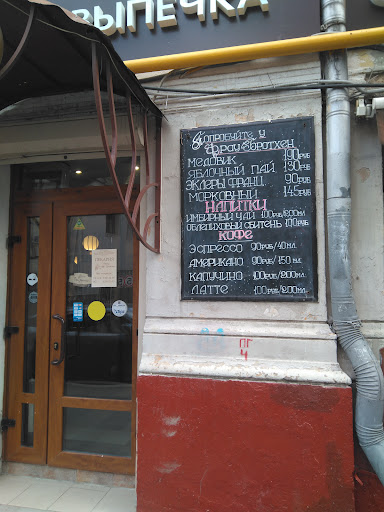 ВЫПЕЧКА
Попробуйте у
Фрау Бротхен
МЕДОВИК 190 РУБ
ЯБЛОЧНЫЙ ПАЙ 130 РУБ
ЭКЛЕРЫ ФРАНЦ. 90 РУБ
МОРКОВНЫЙ 145 РУБ
НАПИТКИ
ИМБИРНЫЙ ЧАЙ 100 РУБ/200 МЛ
ОБЛЕПИХОВЫЙ СБИТЕНЬ 100 РУБ.
КОФЕ
ЭСПРЕССО 90 РУБ/40 МЛ.
АМЕРИКАНО 90 РУБ/150 МЛ
КАПУЧИНО 100 РУБ/200 МЛ.
ЛАТТЕ 100 РУБ/200 МЛ.
ПГ
4